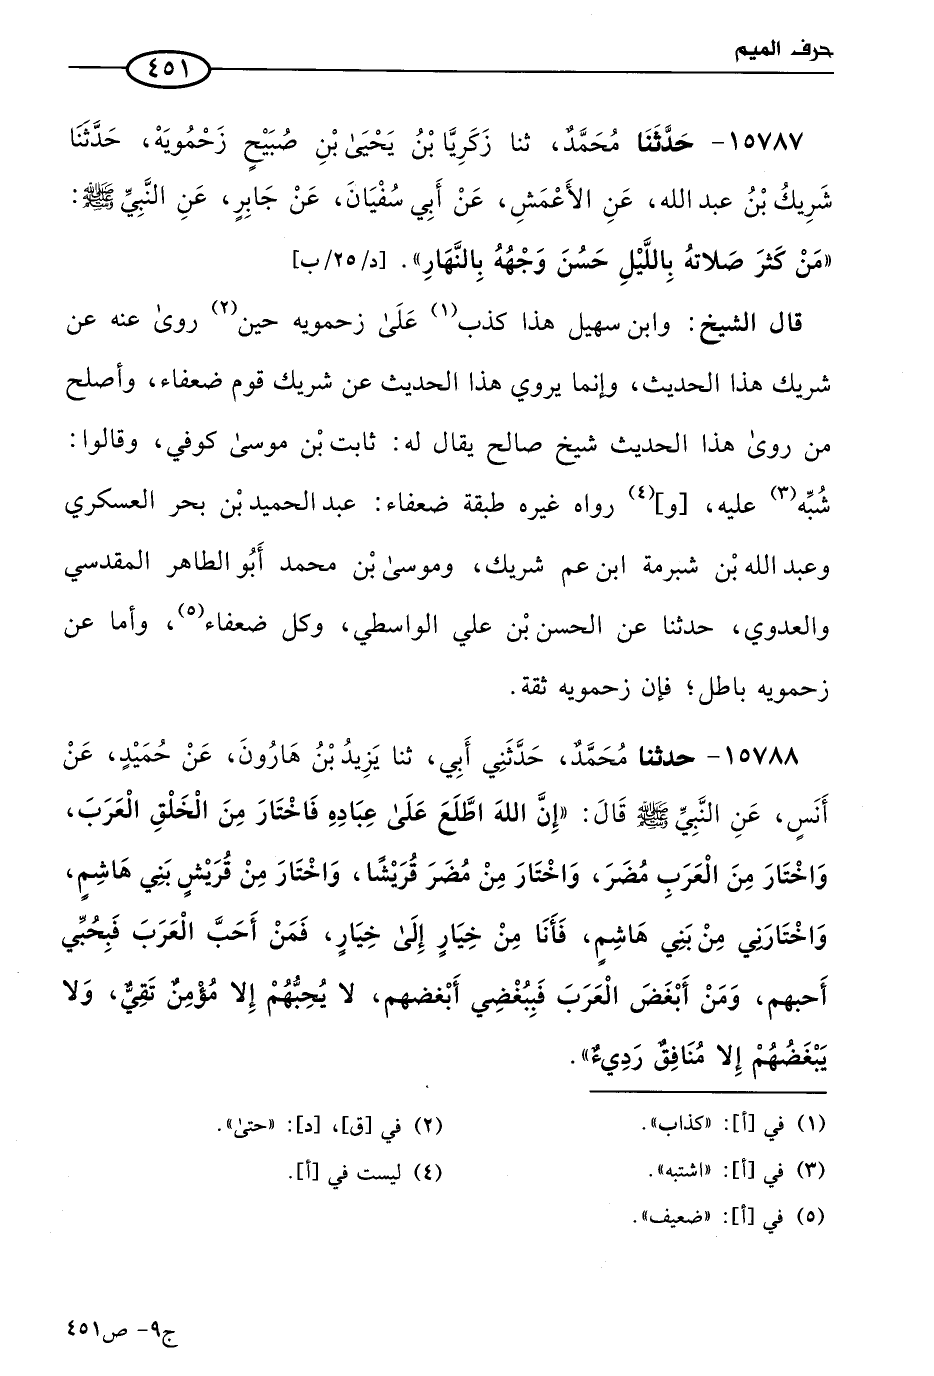 حرف الميم
٤٥١
١٥٧٨٧- حَدَّثَنَا مُحَمَّدٌ، ثنا زَكَرِيَّا بْنُ يَحْيَىٰ بْنِ صُبَيْحٍ زَحْمُويَهْ، حَدَّثَنَا
شَرِيكُ بْنُ عبد الله، عَنِ الأَعْمَشِ، عَنْ أَبِي سُفْيَانَ، عَنْ جَابِرٍ، عَنِ النَّبِيِّ ﷺ:
«مَنْ كَثرَ صَلاتهُ بِاللَّيْلِ حَسُنَ وَجْهُهُ بِالنَّهَارِ». [د/٢٥/ب]
قال الشيخ: وابن سهيل هذا كذب(١) عَلَىٰ زحمويه حين(٢) روىٰ عنه عن
شريك هذا الحديث، وإنما يروي هذا الحديث عن شريك قوم ضعفاء، وأصلح
من روىٰ هذا الحديث شيخ صالح يقال له: ثابت بْن موسىٰ كوفي، وقالوا:
شُبِّه(٣) عليه، [و](٤) رواه غيره طبقة ضعفاء: عبد الحميد بْن بحر العسكري
وعبد الله بْن شبرمة ابن عم شريك، وموسىٰ بْن محمد أَبُو الطاهر المقدسي
والعدوي، حدثنا عن الحسن بْن علي الواسطي، وكل ضعفاء(٥)، وأما عن
زحمويه باطل؛ فإن زحمويه ثقة.
١٥٧٨٨- حدثنا مُحَمَّدٌ، حَدَّثَنِي أَبِي، ثنا يَزِيدُ بْنُ هَارُونَ، عَنْ حُمَيْدٍ، عَنْ
أَنَسٍ، عَنِ النَّبِيِّ ﷺ قَالَ: «إِنَّ اللهَ اطَّلَعَ عَلَىٰ عِبَادِهِ فَاخْتَارَ مِنَ الْخَلْقِ الْعَرَبَ،
وَاخْتَارَ مِنَ الْعَرَبِ مُضَرَ، وَاخْتَارَ مِنْ مُضَرَ قُرَيْشًا، وَاخْتَارَ مِنْ قُرَيْشٍ بَنِي هَاشِمٍ،
وَاخْتَارَنِي مِنْ بَنِي هَاشِمٍ، فَأَنَا مِنْ خِيَارٍ إِلَىٰ خِيَارٍ، فَمَنْ أَحَبَّ الْعَرَبَ فَبِحُبِّي
أَحبهم، وَمَنْ أَبْغَضَ الْعَرَبَ فَبِبُغْضِي أَبْغضهم، لا يُحِبُّهُمْ إِلا مُؤْمِنٌ تَقِيٌّ، وَلا
يَبْغَضُهُمْ إِلا مُنَافِقٌ رَدِيءٌ».
(١) في [أ]: «كذاب».
(٢) في [ق]، [د]: «حتىٰ».
(٣) في [أ]: «اشتبه».
(٤) ليست في [أ].
(٥) في [أ]: «ضعيف».
ج٩- ص٤٥١